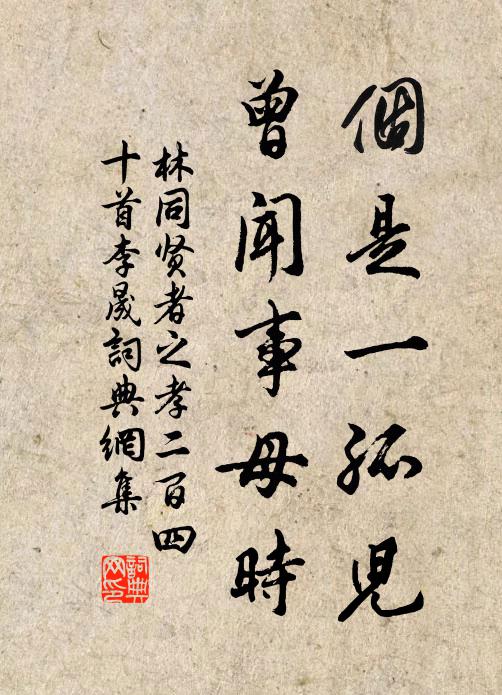 個是一孤児
曾闻事母時
林同贤者之孝二百四
十首李晟詞典網集
詞典
网印